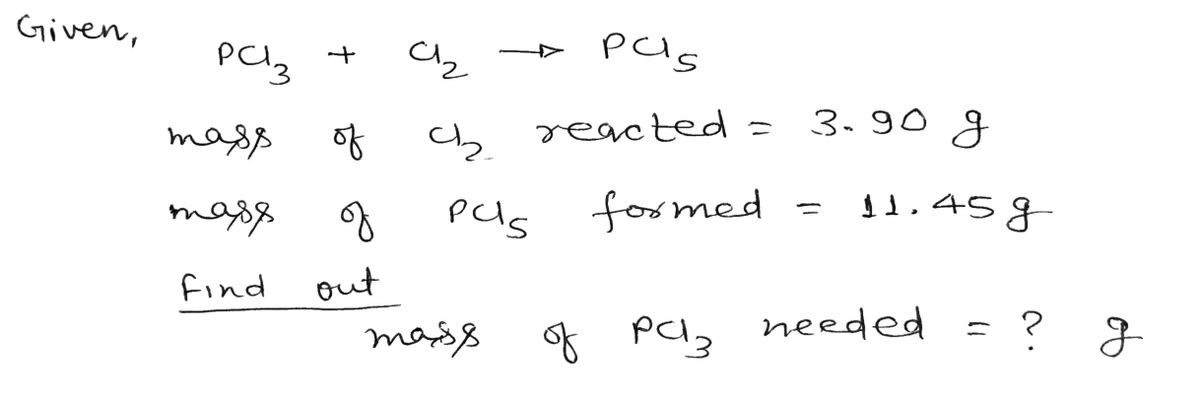 Given,
PCl₃ + Cl₂ → PCl₅
mass of Cl₂ reacted = 3.90 g
mass of PCl₅ formed = 11.45 g
Find out
mass of PCl₃ needed = ? g